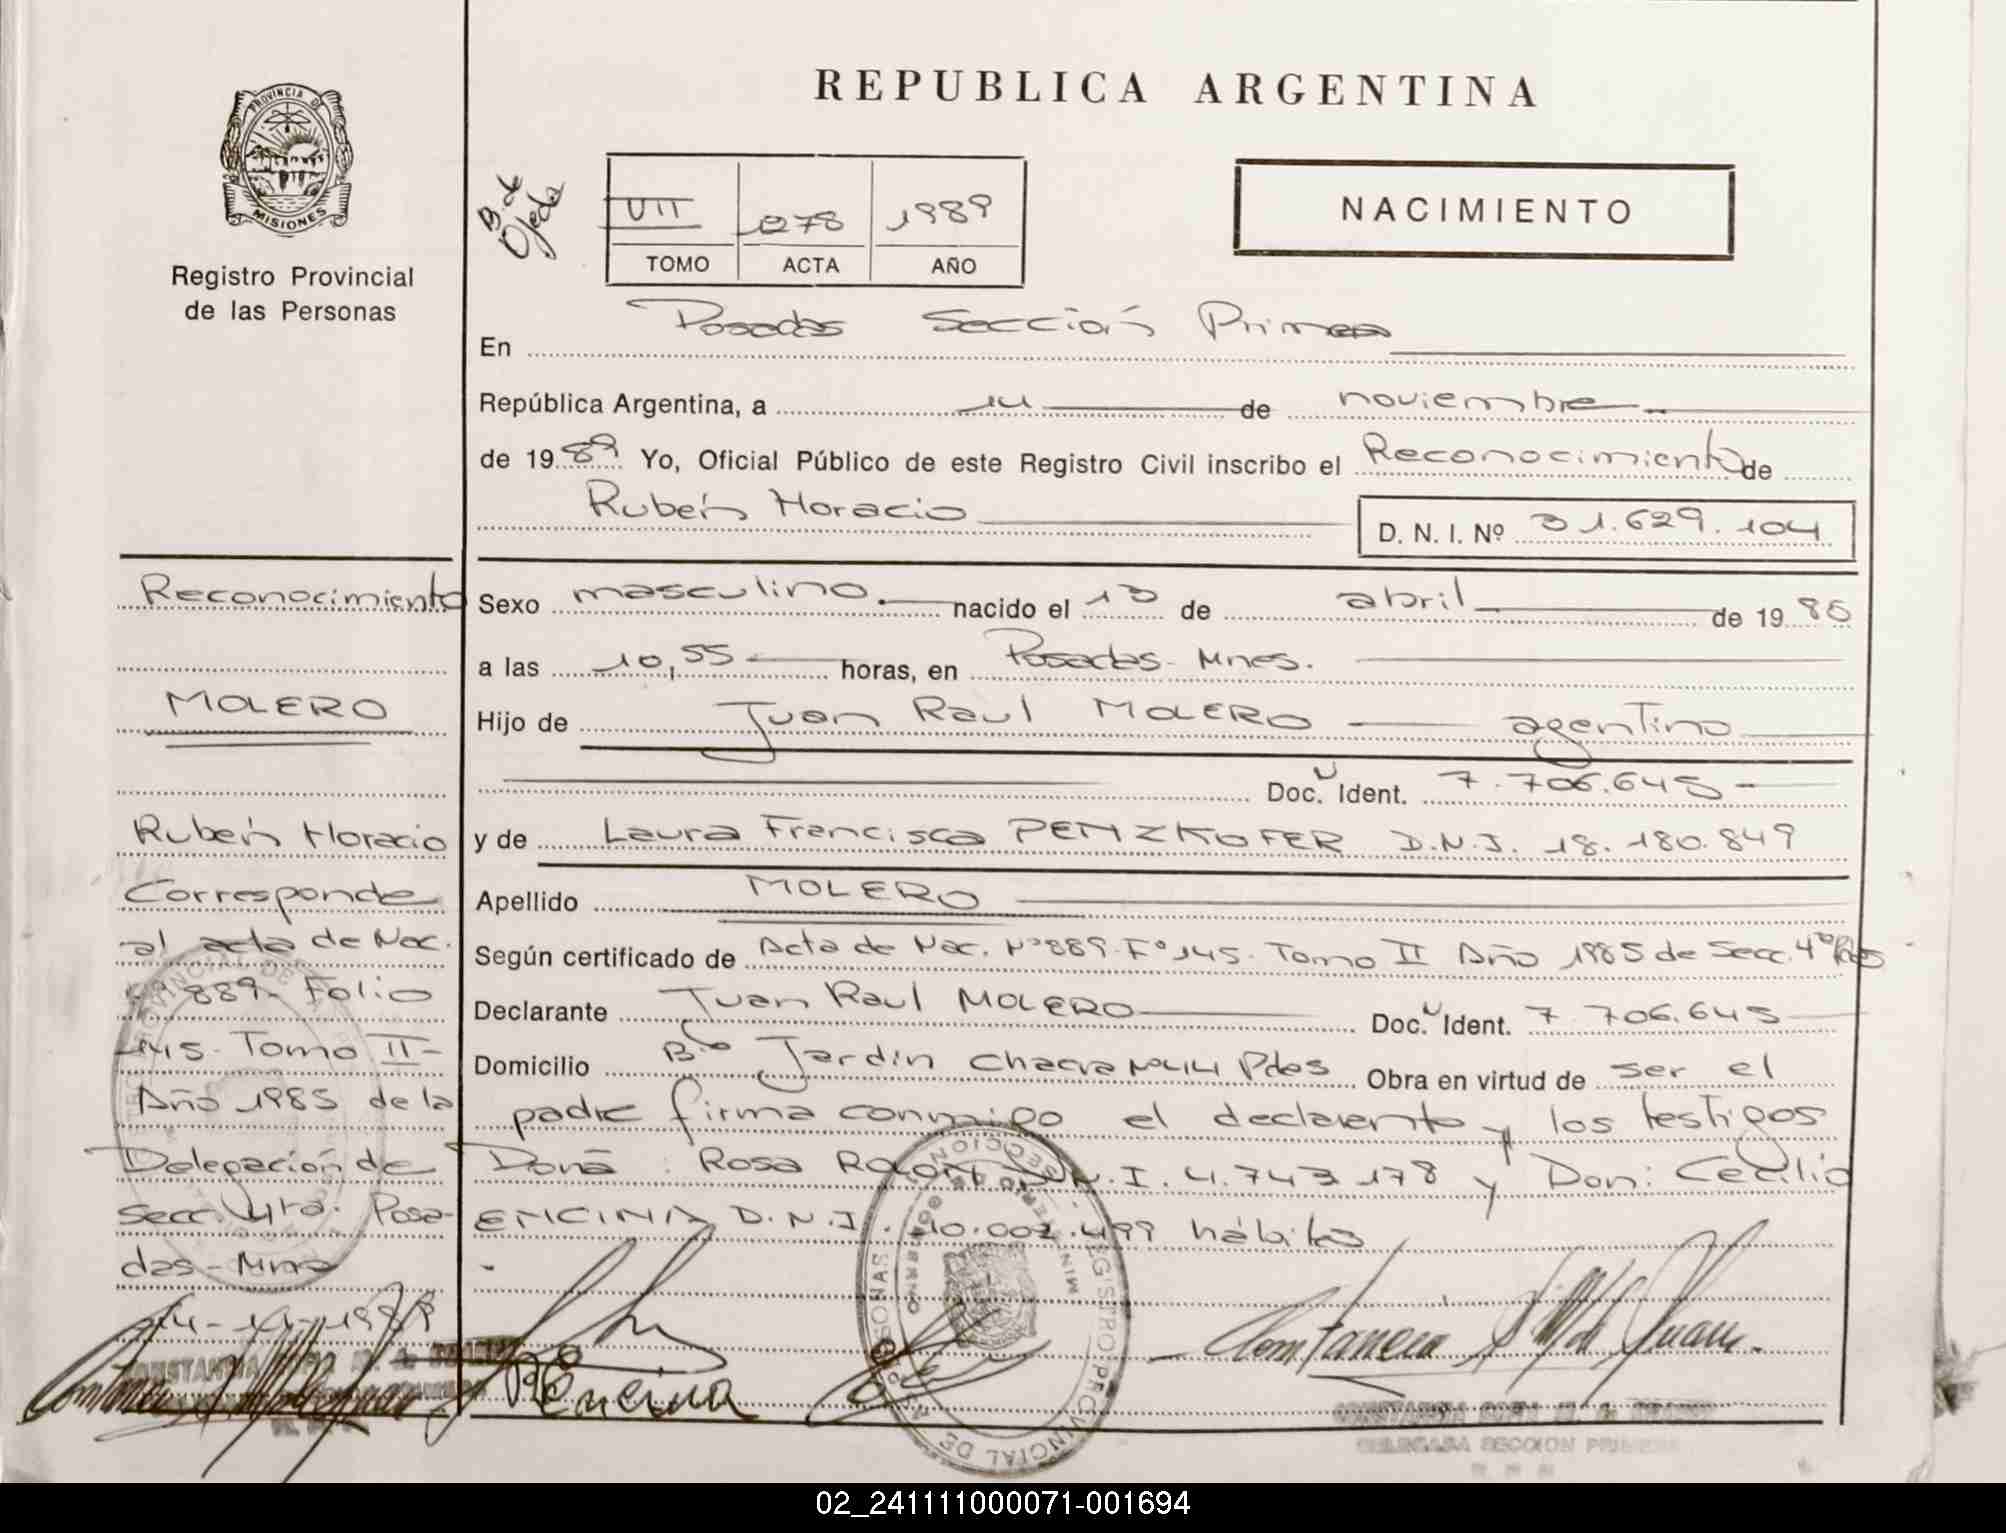 PROVINCIA DE
MISIONES
Registro Provincial
de las Personas
REPUBLICA ARGENTINA
B. de
Ojeda
VII 1278 1989
TOMO ACTA AÑO
NACIMIENTO
En Posadas Sección Primera
República Argentina, a 14 de noviembre
de 1989 Yo, Oficial Público de este Registro Civil inscribo el Reconocimiento de
Rubén Horacio
D. N. I. Nº 31.629.104
Sexo masculino nacido el 13 de abril de 1985
a las 10,55 horas, en Posadas - Mnes.
Hijo de Juan Raul MOLERO agentino
Doc. Ident. 7.706.645
y de Laura Francisca PENZKOFER D.N.I. 18.180.849
Apellido MOLERO
Según certificado de Acta de Nac. Nº 889 - Fº 145 - Tomo II Año 1985 de Secc. 4º Pdas
Declarante Juan Raul MOLERO Doc. Ident. 7.706.645
Domicilio Bº Jardin Chacra Nº 44 Pdas Obra en virtud de ser el
padre firma conmigo el declarante y los testigos
Doña: Rosa ROLON D.N.I. 4.743.178 y Don: Cecilio
ENCINA D.N.I. 10.002.499 hábiles
Reconocimiento
MOLERO
Rubén Horacio
Corresponde
al acta de Nac.
Nº 889 - Folio
145 - Tomo II -
Año 1985 de la
Delegación de
Secc. 4ta. Posa-
das - Mnes
14-11-1989
Encina
REGISTRO PROVINCIAL DE
DELEGADA SECCION PRIMERA
02_241111000071-001694